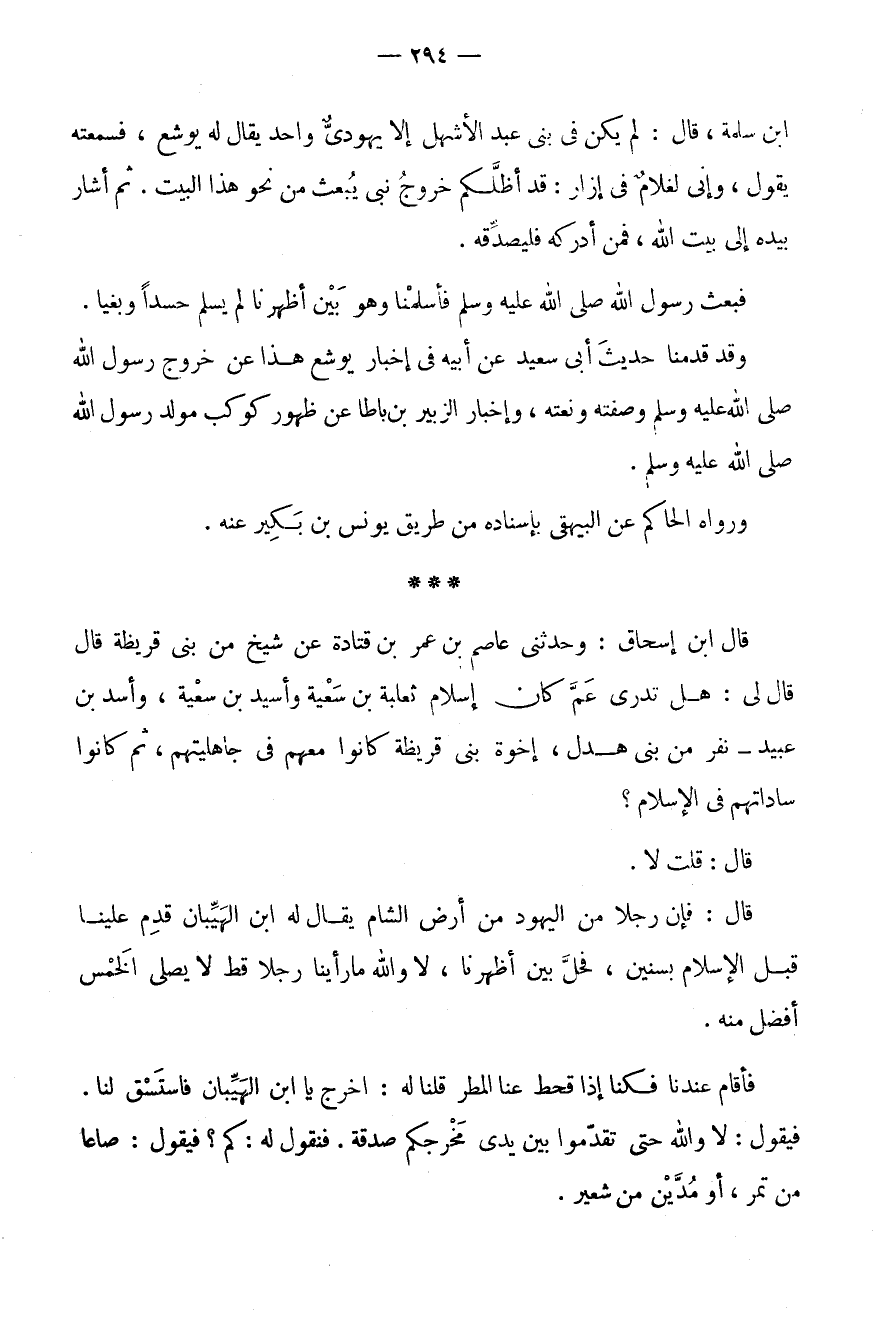 — ٢٩٤ —
ابن سلمة ، قال : لم يكن فى بنى عبد الأشهل إلا يهودىٌّ واحد يقال له يوشع ، فسمعته
يقول ، وإنى لغلامٌ فى إزار : قد أظلَّكم خروجُ نبى يُبعث من نحو هذا البيت . ثم أشار
بيده إلى بيت الله ، فمن أدركه فليصدِّقه .
فبعث رسول الله صلى الله عليه وسلم فأسلمْنا وهو بَيْن أظهرنا لم يسلم حسداً وبغيا .
وقد قدمنا حديثَ أبى سعيد عن أبيه فى إخبار يوشع هذا عن خروج رسول الله
صلى الله عليه وسلم وصفته ونعته ، وإخبار الزبير بن باطا عن ظهور كوكب مولد رسول الله
صلى الله عليه وسلم .
ورواه الحاكم عن البيهقى بإسناده من طريق يونس بن بَكِير عنه .
* * *
قال ابن إسحاق : وحدثنى عاصم بن عمر بن قتادة عن شيخ من بنى قريظة قال
قال لى : هل تدرى عَمَّ كان إسلام ثعلبة بن سَعْية وأسيد بن سعْية ، وأسد بن
عبيد – نفر من بنى هدل ، إخوة بنى قريظة كانوا معهم فى جاهليتهم ، ثم كانوا
ساداتهم فى الإسلام ؟
قال : قلت لا .
قال : فإن رجلا من اليهود من أرض الشام يقال له ابن الهَيِّبان قدِم علينا
قبل الإسلام بسنين ، فحلَّ بين أظهرنا ، لا والله ما رأينا رجلا قط لا يصلى الخَمْس
أفضل منه .
فأقام عندنا فكنا إذا قحط عنا المطر قلنا له : اخرج يا ابن الهَيِّبان فاستَسْق لنا .
فيقول : لا والله حتى تقدّموا بين يدى مَخْرجكم صدقة . فنقول له : كم ؟ فيقول : صاعا
من تمر ، أو مُدَّيْن من شعير .